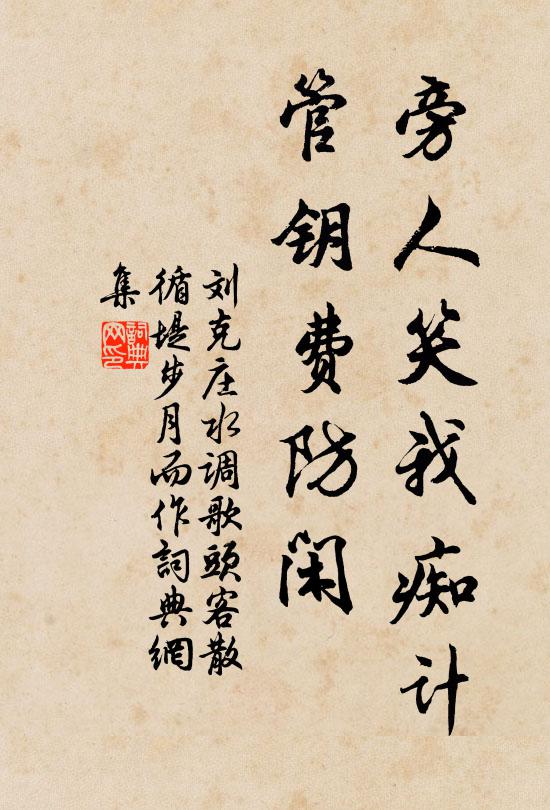 旁人笑我痴计
管钥费防闲
刘克庄水调歌头客散
循堤步月而作詞典網
集
詞典網印